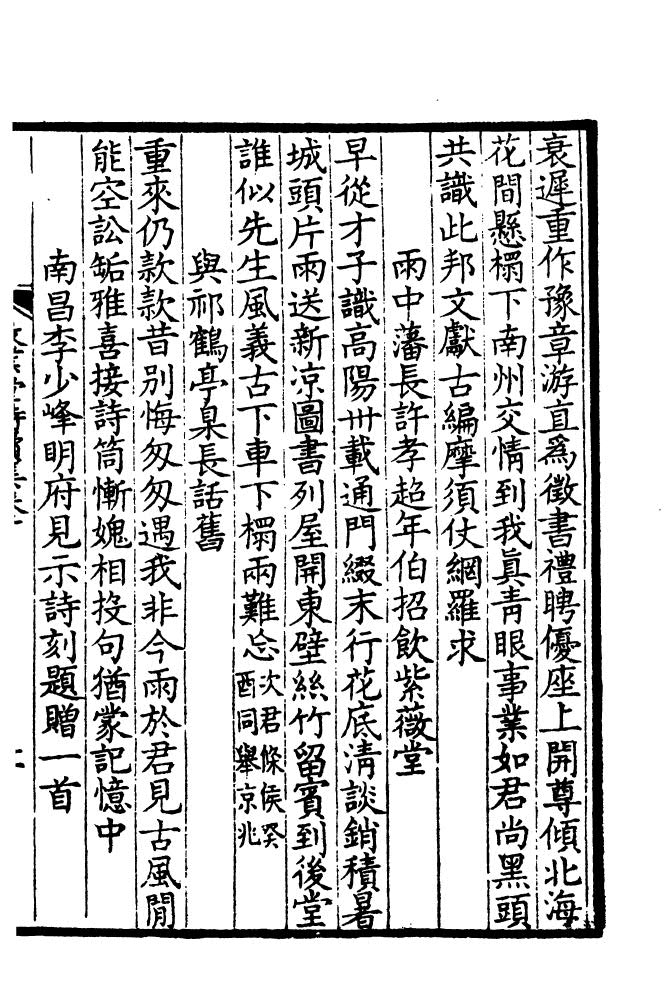 衰遲重作豫章游直爲徵書禮聘優座上開尊傾北海
花間懸榻下南州交情到我眞靑眼事業如君尚黑頭
共識此邦文獻古編摩須仗網羅求
雨中藩長許孝超年伯招飲紫薇堂
早從才子識高陽卅載通門綴末行花底淸談銷積暑
城頭片雨送新凉圖書列屋開東壁絲竹留賓到後堂
誰似先生風義古下車下榻兩難忘次君條侯癸
酉同舉京兆
與祁鶴亭臬長話舊
重來仍款款昔別悔匆匆遇我非今雨於君見古風閒
能空訟缿雅喜接詩筒慚媿相投句猶蒙記憶中
南昌李少峰明府見示詩刻題贈一首